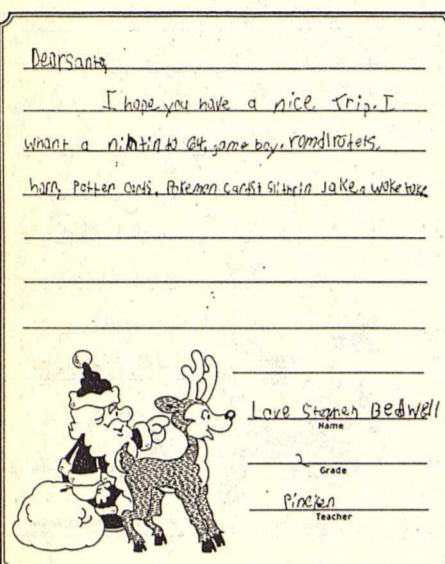 Dear Santa,
I hope you have a nice Trip. I
whant a nintinto 64, game boy, romdlrotels,
harry Potter cards, Pokemon cards, Slithrin Jaken woketoke
Love Stephen Bedwell
Name
2
Grade
Pincken
Teacher